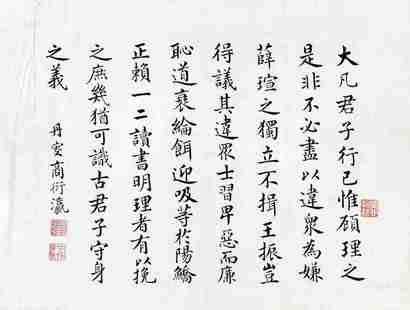 大凡君子行己惟顧理之
是非不必盡以違衆為嫌
薛瑄之獨立不揖王振豈
得議其違眾士習卑惡而廉
恥道衰綸餌迎吸等於陽鱎
正賴一二讀書明理者有以挽
之庶幾猶可識古君子守身
之義
丹叜商衍瀛